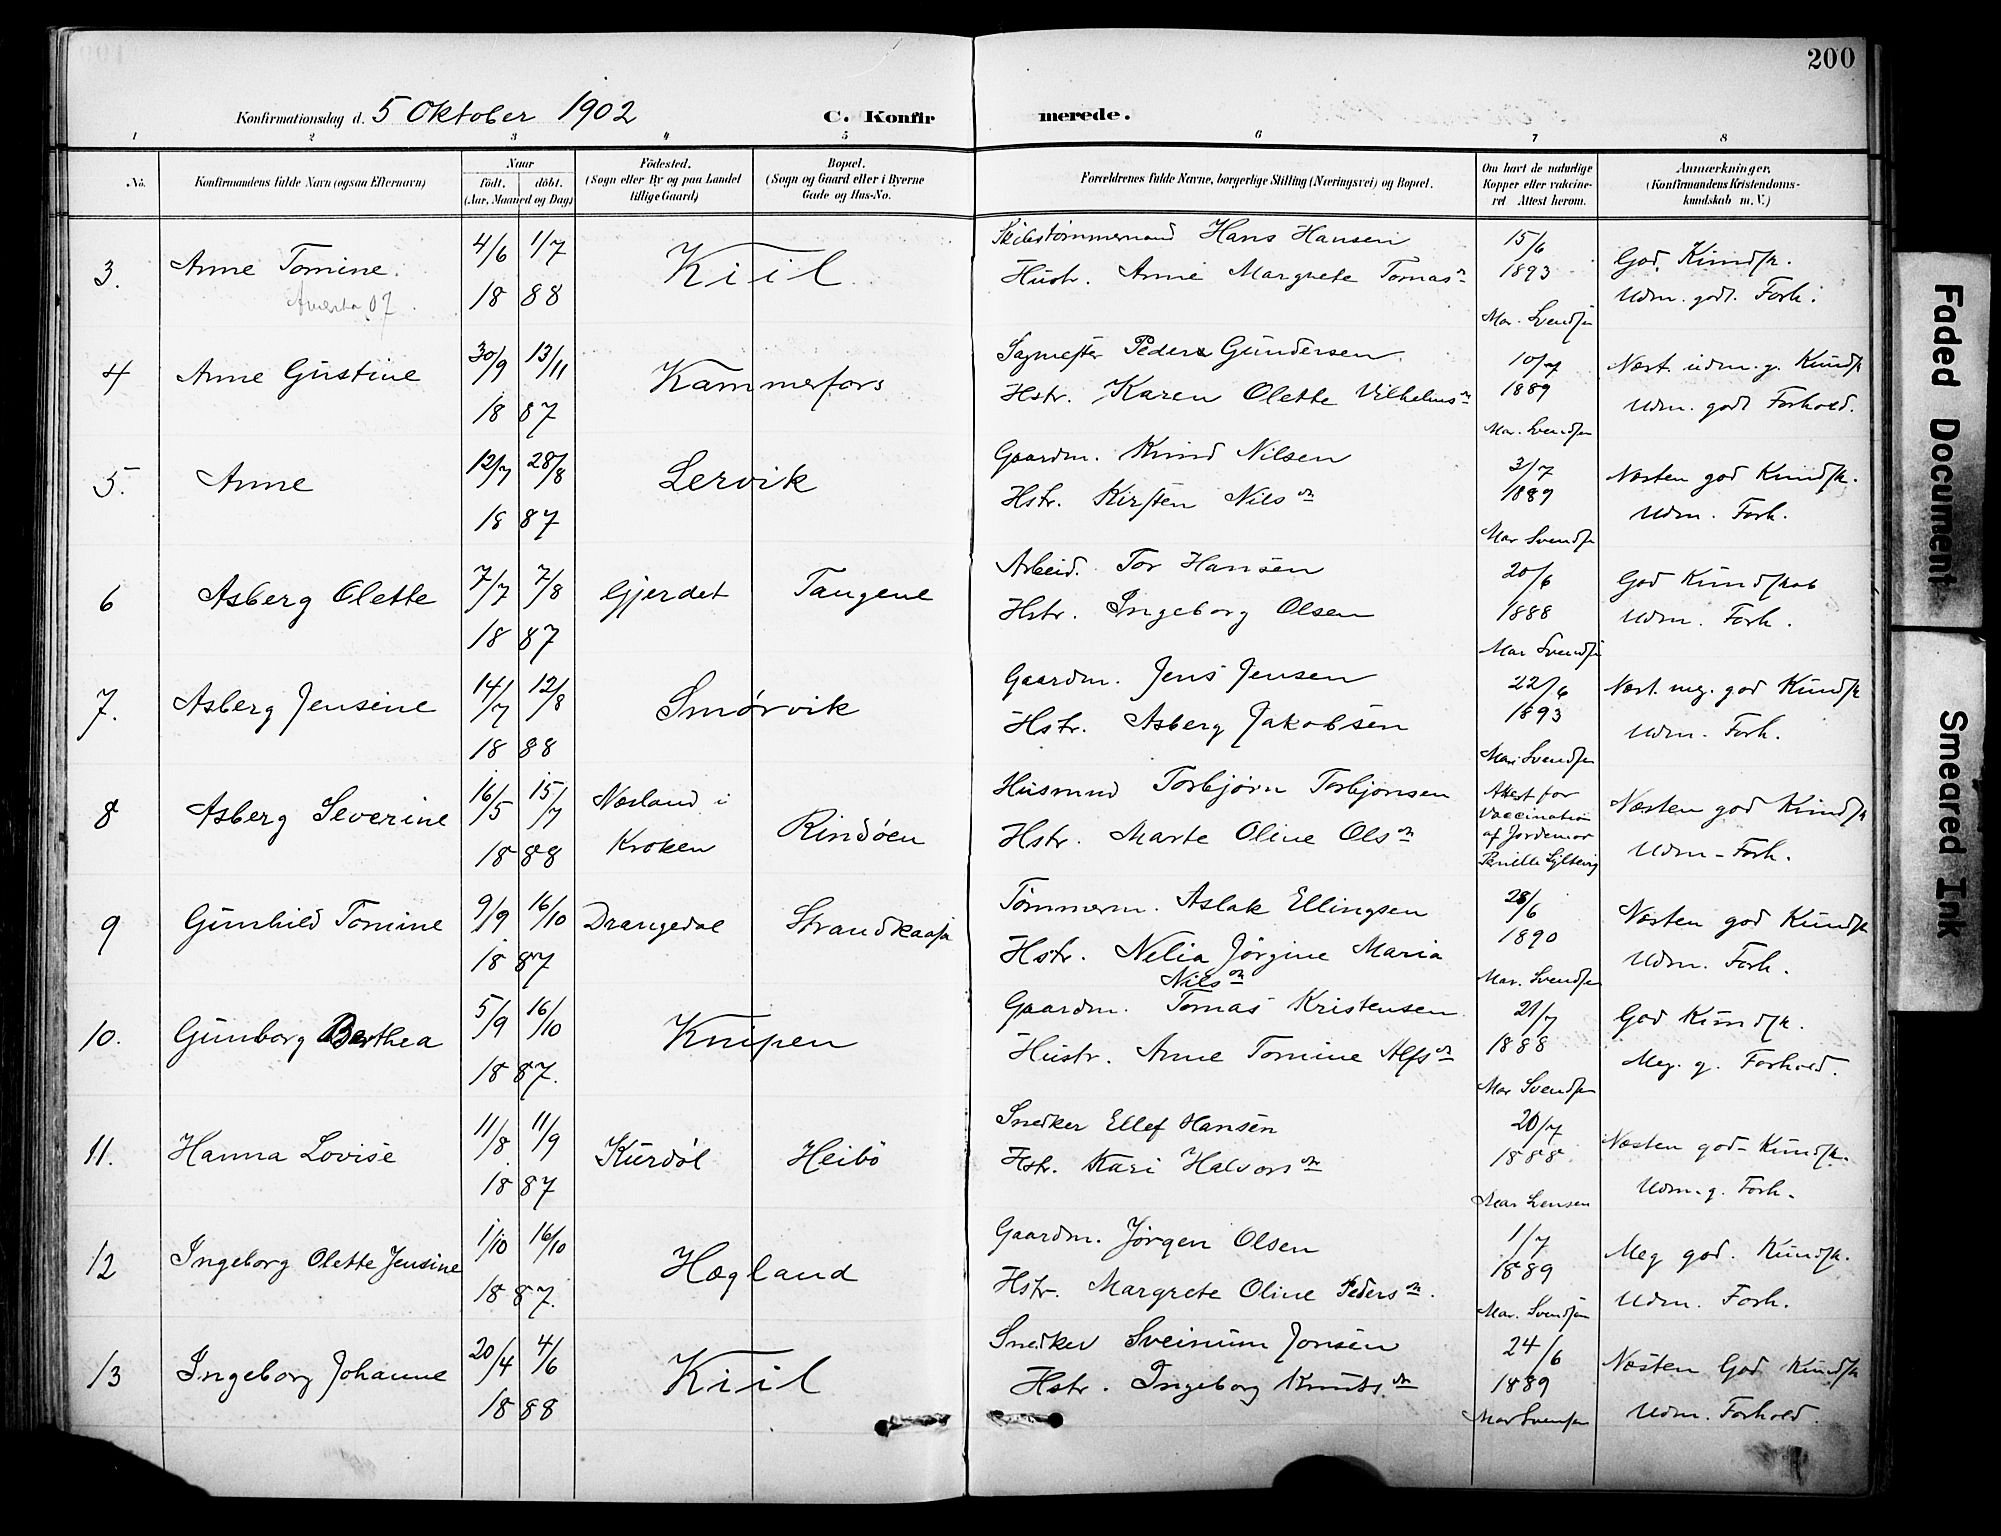 200
Konfirmationsdag d. 5 Oktober 1902
C. Konfirmerede.
1 2 3 4 5 6 7 8
No.
Konfirmandens fulde Navn (ogsaa Efternavn)
Naar
födt. döbt.
(Aar, Maaned og Dag)
Födested.
(Sogn eller By og paa Landet
tillige Gaard)
Bopæl.
(Sogn og Gaard eller i Byerne
Gade og Hus-No.
Forældrenes fulde Navne, borgerlige Stilling (Næringsvei) og Bopæl.
Om havt de naturlige
Kopper eller vakcine-
ret Attest herom.
Anmærkninger.
(Konfirmandens Kristendoms-
kundskab m. V.)
3. Anne Tomine.
4/6 1/7
18 88
Kiil
Skibstømmermand Hans Hansen
Hustr. Anne Margrete Tomasn
15/6
1893
Mar. Svendsen
God. Kundsk.
Udm. godt. Forh.
4 Anne Gustine
30/9 13/11
18 87
Kammerfors
Sagmester Peder Gundersen.
Hstr. Karen Olette Vilhelmsn
10/7
1889
Mar. Svendsen
Næst. udm. g. Kundsk
Udm. godt Forhold.
5. Anne
12/7 28/8
18 87
Lervik
Gaardm. Knud Nilsen
Hstr. Kirsten Nilsdn
3/7
1889
Mar Svendsen
Næsten god Kundsk.
Udm. Forh.
6 Asberg Olette
7/7 7/8
18 87
Gjerdet
Tangene
Arbeid. Tor Hansen
Hstr. Ingeborg Olsen
20/6
1888
Mar Svendsen
God Kundskab
Udm. Forh.
7. Asberg Jensine
14/7 12/8
18 88
Smørvik
Gaardm. Jens Jensen
Hstr. Asberg Jakobsen
22/6
1893
Mar. Svendsen
Næst. meg. god Kundsk
Udm. Forh.
8 Asberg Severine
16/5 15/7
18 88
Næsland i
Kroken
Rindøen
Husmnd Torbjørn Torbjønsen
Hstr. Marte Oline Olsdn
Attest for
Vaccination
af Jordemor
Næsten god Kundsk
Udm. Forh.
9 Gunhild Tomine
9/9 16/10
18 87
Drangedal
Strandkaasa
Tømmerm. Aslak Ellingsen
Hstr. Nelia Jørgine Maria
Nilsdn
28/6
1890
Mar. Svendsen
Næsten god Kundsk
Udm. Forh.
10. Gunborg Berthea
5/9 16/10
18 87.
Knipen
Gaardm. Tomas Kristensen
Hustr. Anne Tomine Alfsdn
21/7
1888
Mar Svendsen
God Kundsk.
Meg. g. Forhold.
11. Hanna Lovise
11/8 11/9
18 87
Kurdøl
Heibö
Snedker Ellef Hansen
Hstr. Kari Halvorsdn
20/7
1888
Næsten god Kundsk.
Udm. g. Forh.
12 Ingeborg Olette Jensine
1/10 16/10
18 87.
Hægland
Gaardm. Jørgen Olsen
Hstr. Margrete Oline Pedersdn.
1/7
1889
Mar. Svendsen
Meg god. Kundsk.
Udm. Forh.
13 Ingeborg Johanne
20/4 4/6
18 88
Kiil
Snedker Sveinum Jonsen
Hstr. Ingeborg Knutsdn
24/6
1889
Mar Svensen
Næsten God Kundsk
Udm. Forhold.
Faded Document
Smeared Ink